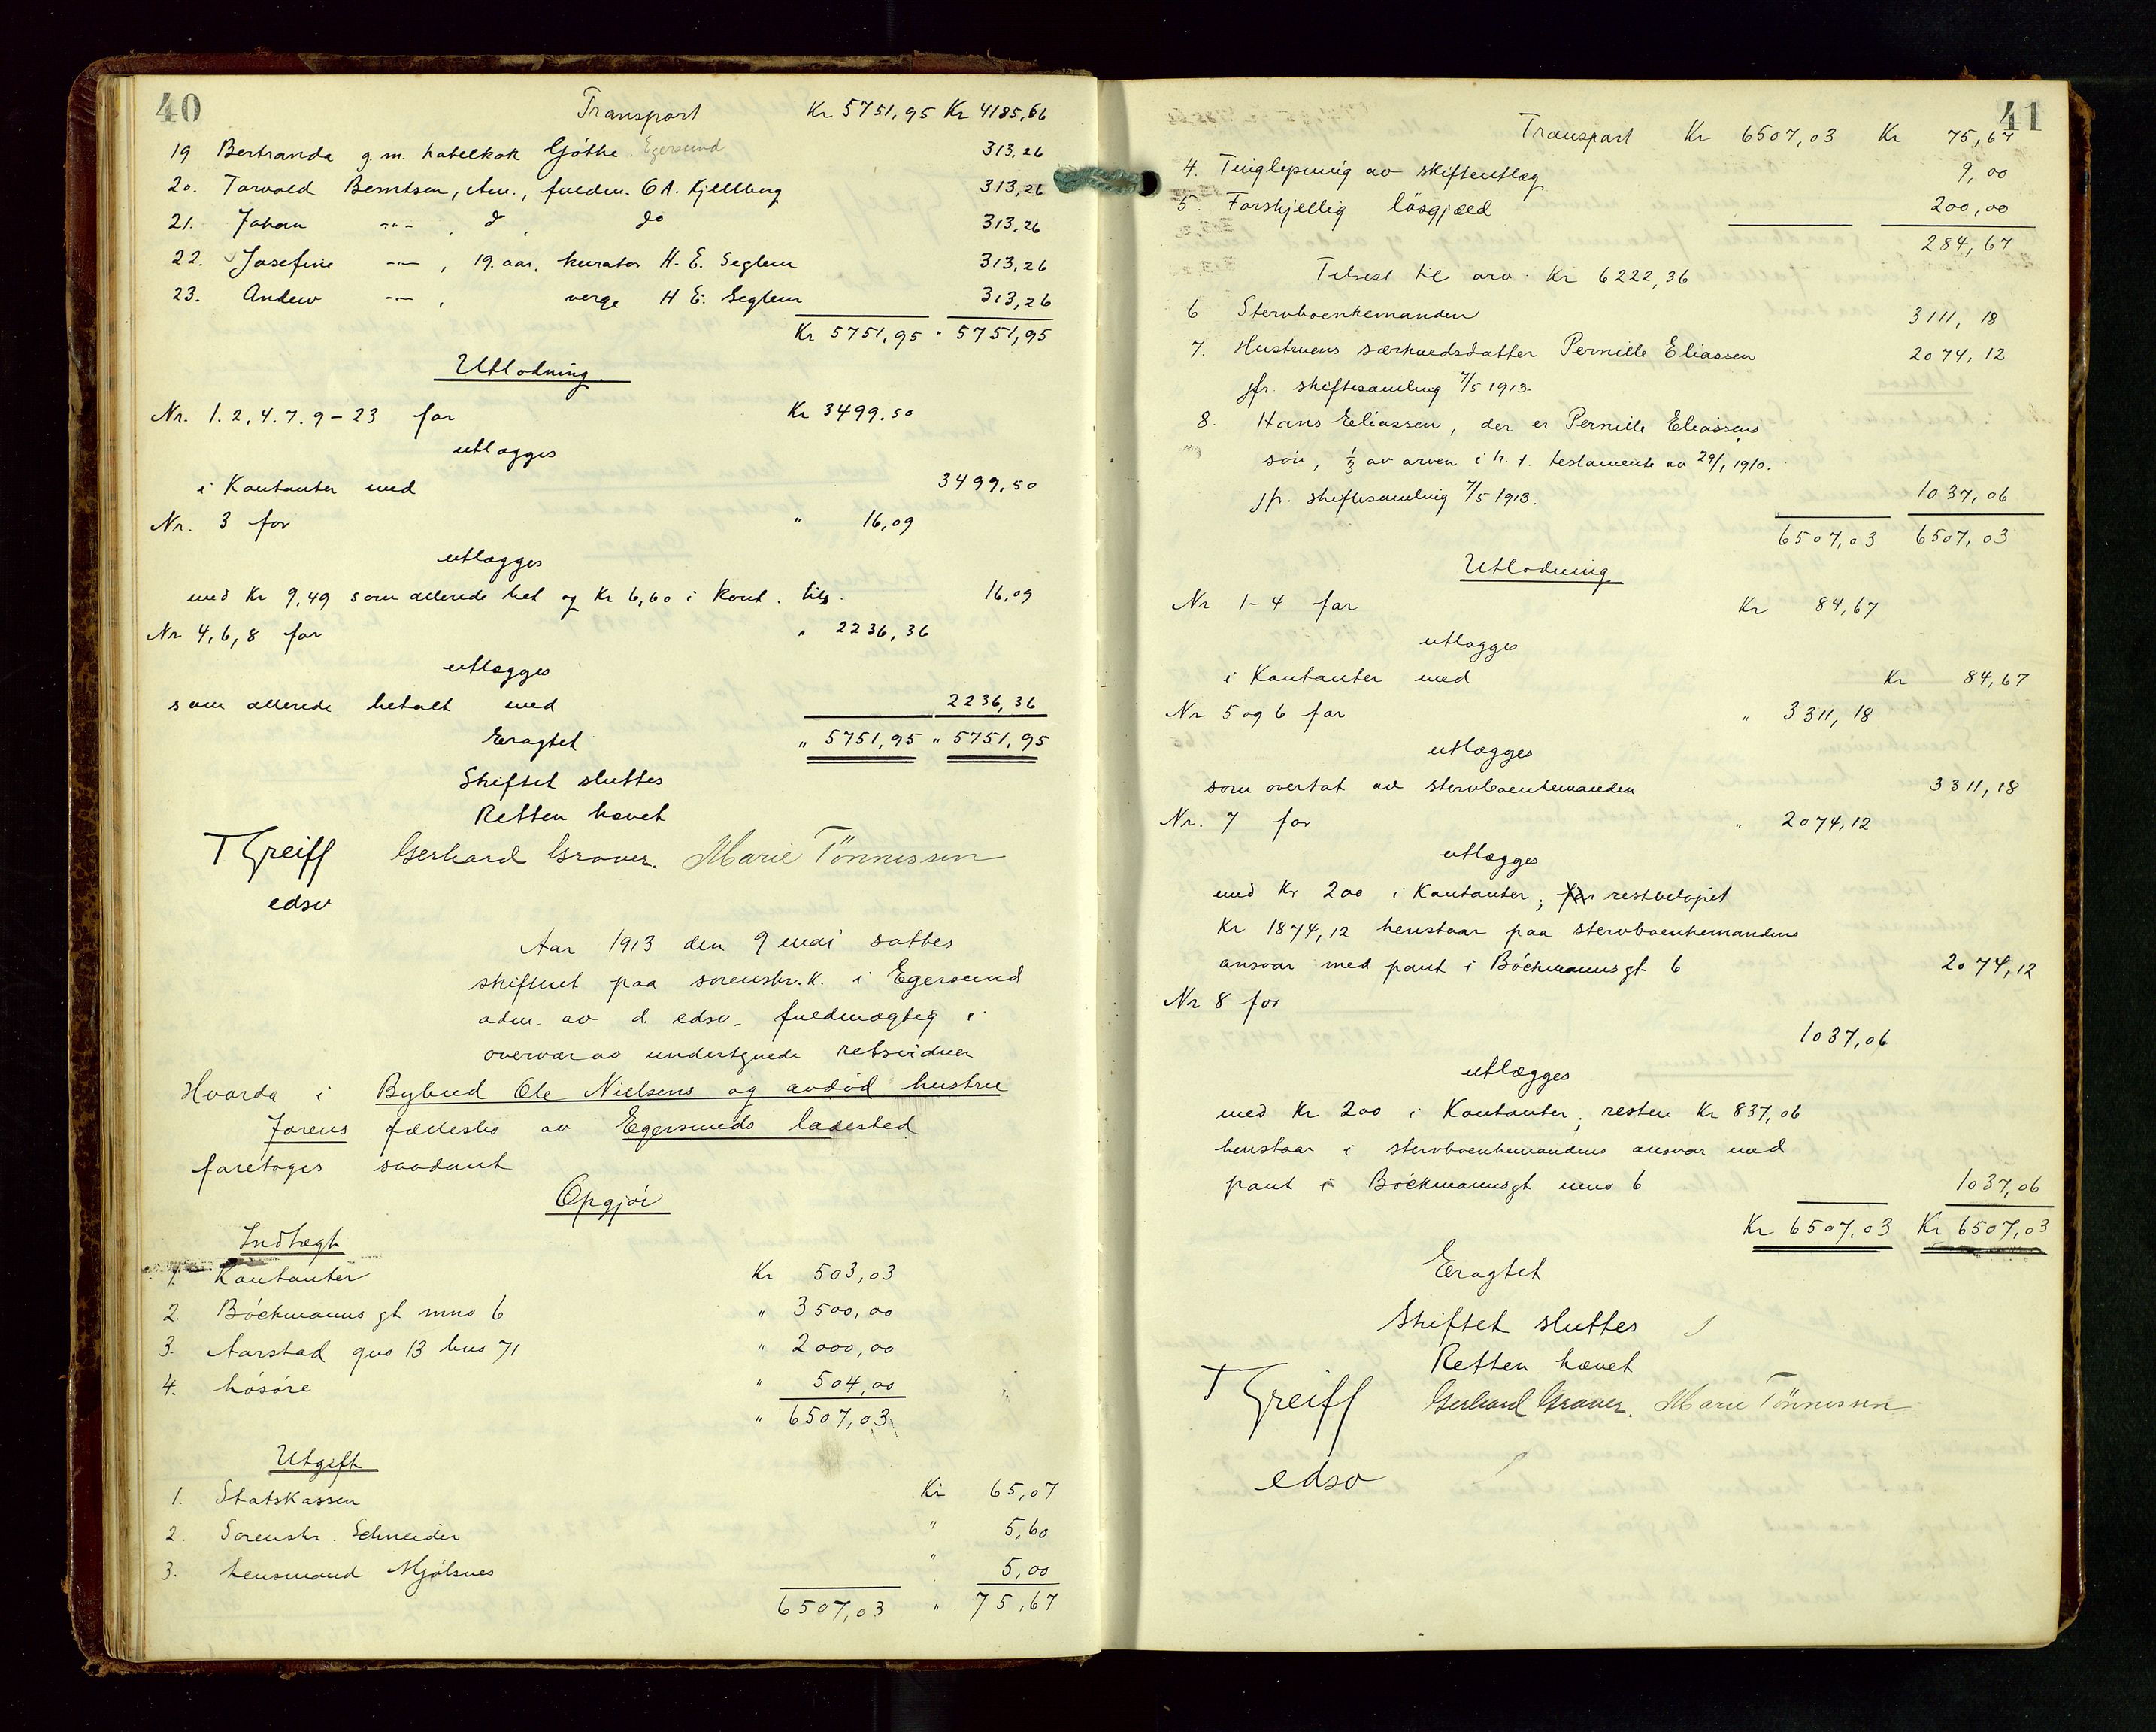 40
Transport Kr 5751,95 Kr 4185,66
19 Bertranda g. m. hotelkok Göthe Egersund 313,26
20. Torvald Berntsen, Am., fuldm. O A. Kjellberg 313,26
21. Johan -"- , d , do 313,26
22. Josefine -"- , 19. aar, kurator H. E. Seglem 313,26
23. Andew -"- , verge H E. Seglem 313,26
Kr 5751,95 " 5751,95
Utlodning.
Nr. 1. 2, 4. 7. 9 - 23 for Kr 3499.50
utlægges
i Kontanter med 3499,50
Nr. 3 for " 16,09
utlægges
med Kr 9,49 som allerede bet og Kr 6,60 i kont. tils. 16,09
Nr 4, 6, 8 for " 2236,36
utlægges
som allerede betalt med 2236,36
Eragtet " 5751,95 " 5751,95
Skiftet sluttes
Retten hævet
T Greiff Gerhard Graver. Marie Tönnessen
edsv
Aar 1913 den 9 mai sattes
skifteret paa sorenskr.k. i Egersund
adm. av d. edsv. fuldmægtig i
overvær av undertegnede retsvidner
Hvorda i Bybud Ole Nielsens og avdöd hustru
Jorens fællesbo av Egersunds ladested
foretoges saadant
Opgjör
Indtægt
1. Kontanter Kr 503,03
2. Böckmanns gt mno 6 " 3500,00
3. Aarstad gno 13 bno 71 " 2000,00
4. Lösöre " 504,00
" 6507,03
Utgift
1. Statskassen Kr 65,07
2. Sorenskr. Schneider " 5,60
3. Lensmand Mjölsnes " 5,00
6507,03 " 75,67
41
Transport Kr 6507,03 Kr 75,67
4. Tinglysning av skifteutlæg 9,00
5. Forskjellig lösgjæld 200,00
284,67
Tilrest til arv Kr 6222,36
6 Stervboenkemanden 3111, 18
7. Hustruens særkuldsdatter Pernille Eliassen 2074,12
jfr. skiftesamling 7/5 1913.
8. Hans Eliassen, der er Pernille Eliassens
sön, 1/3 av arven i h. t. testamente av 29/1 1910.
jfr. skiftesamling 7/5 1913. 1037,06
6507,03 6507,03
Utlodning
Nr 1-4 for Kr 84,67
utlægges
i Kontanter med Kr 84,67
Nr 5 og 6 for " 3311,18
utlægges
som overtat av stervboenkemanden 3311,18
Nr. 7 for " 2074,12
utlægges
med Kr 200 i Kontanter; for restbelöpet
Kr 1874,12 henstaar paa stervboenkemandens
ansvar med pant i Böckmannsgt 6 2074,12
Nr 8 for
1037,06
utlægges
med Kr 200 i Kontanter; resten Kr 837,06
henstaar i stervboenkemandens ansvar med
pant i Böckmannsgt mno 6 1037,06
Kr 6507,03 Kr 6507,03
Eragtet
Skiftet sluttes
Retten hævet
T Greiff Gerhard Graver. Marie Tönnessen
edsv